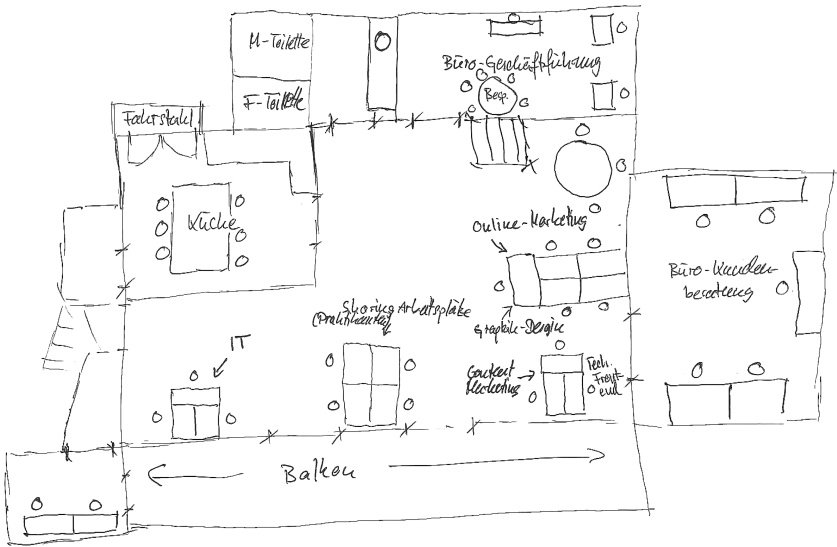 M-Toilette
F-Toilette
Büro-Geschäftsführung
Besp.
Fahrstuhl
Küche
Online-Marketing
Büro-Kunden-
beratung
Sharing Arbeitsplätze
Graphik-Design
IT
Content
Marketing
Tech.
Front-
end
Balkon